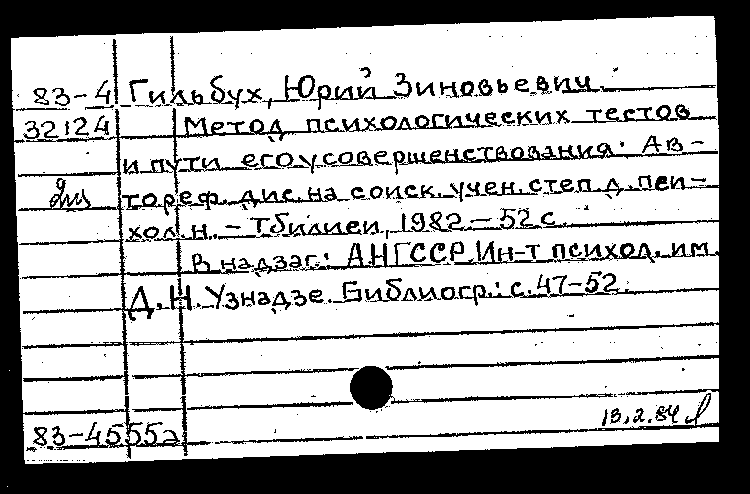 83-4 Гильбух, Юрий Зиновьевич.
32124 Метод психологических тестов
и пути его усовершенствования. Ав-
дис тореф. дис. на соиск. учен. степ. д. пси-
хол. н. - Тбилиси, 1982. - 52 с.
В надзаг.: АН ГССР. Ин-т психол. им.
Д. Н. Узнадзе. Библиогр.: с. 47-52.
13.2.84
83-4555а